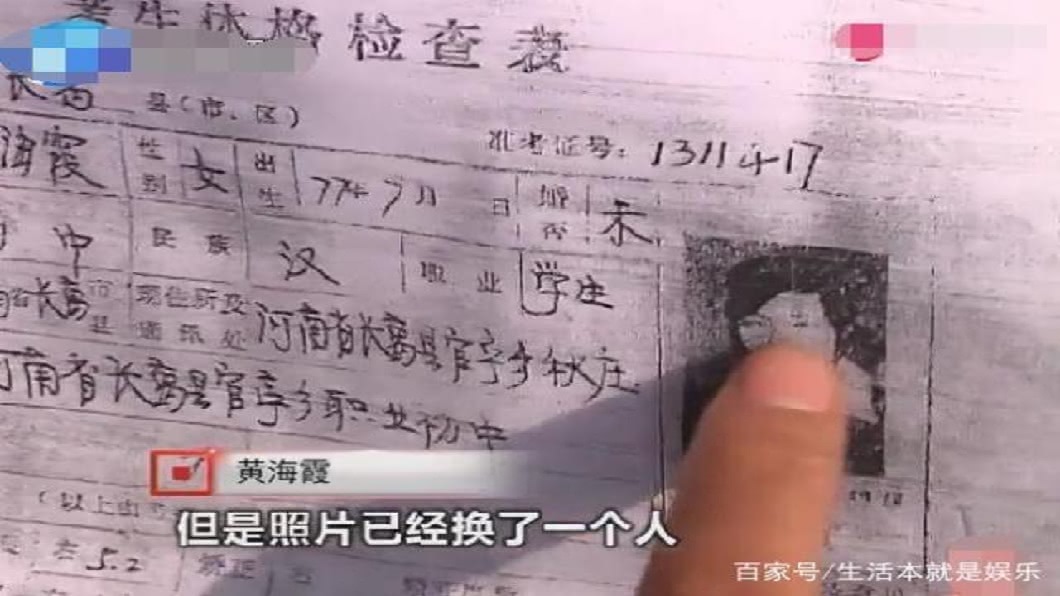 考生体格检查表
长葛 县(市、区)
准考证号: 1311417
海霞 性别 女 出生 77年7月 日 婚否 未
初中 民族 汉 职业 学生
长葛市县 现住所及通讯处 河南省长葛县官亭乡秋庄
河南省长葛县官亭乡职业初中
黄海霞
(以上由
但是照片已经换了一个人
右 5.2 矫正 右
百家号/生活本就是娱乐